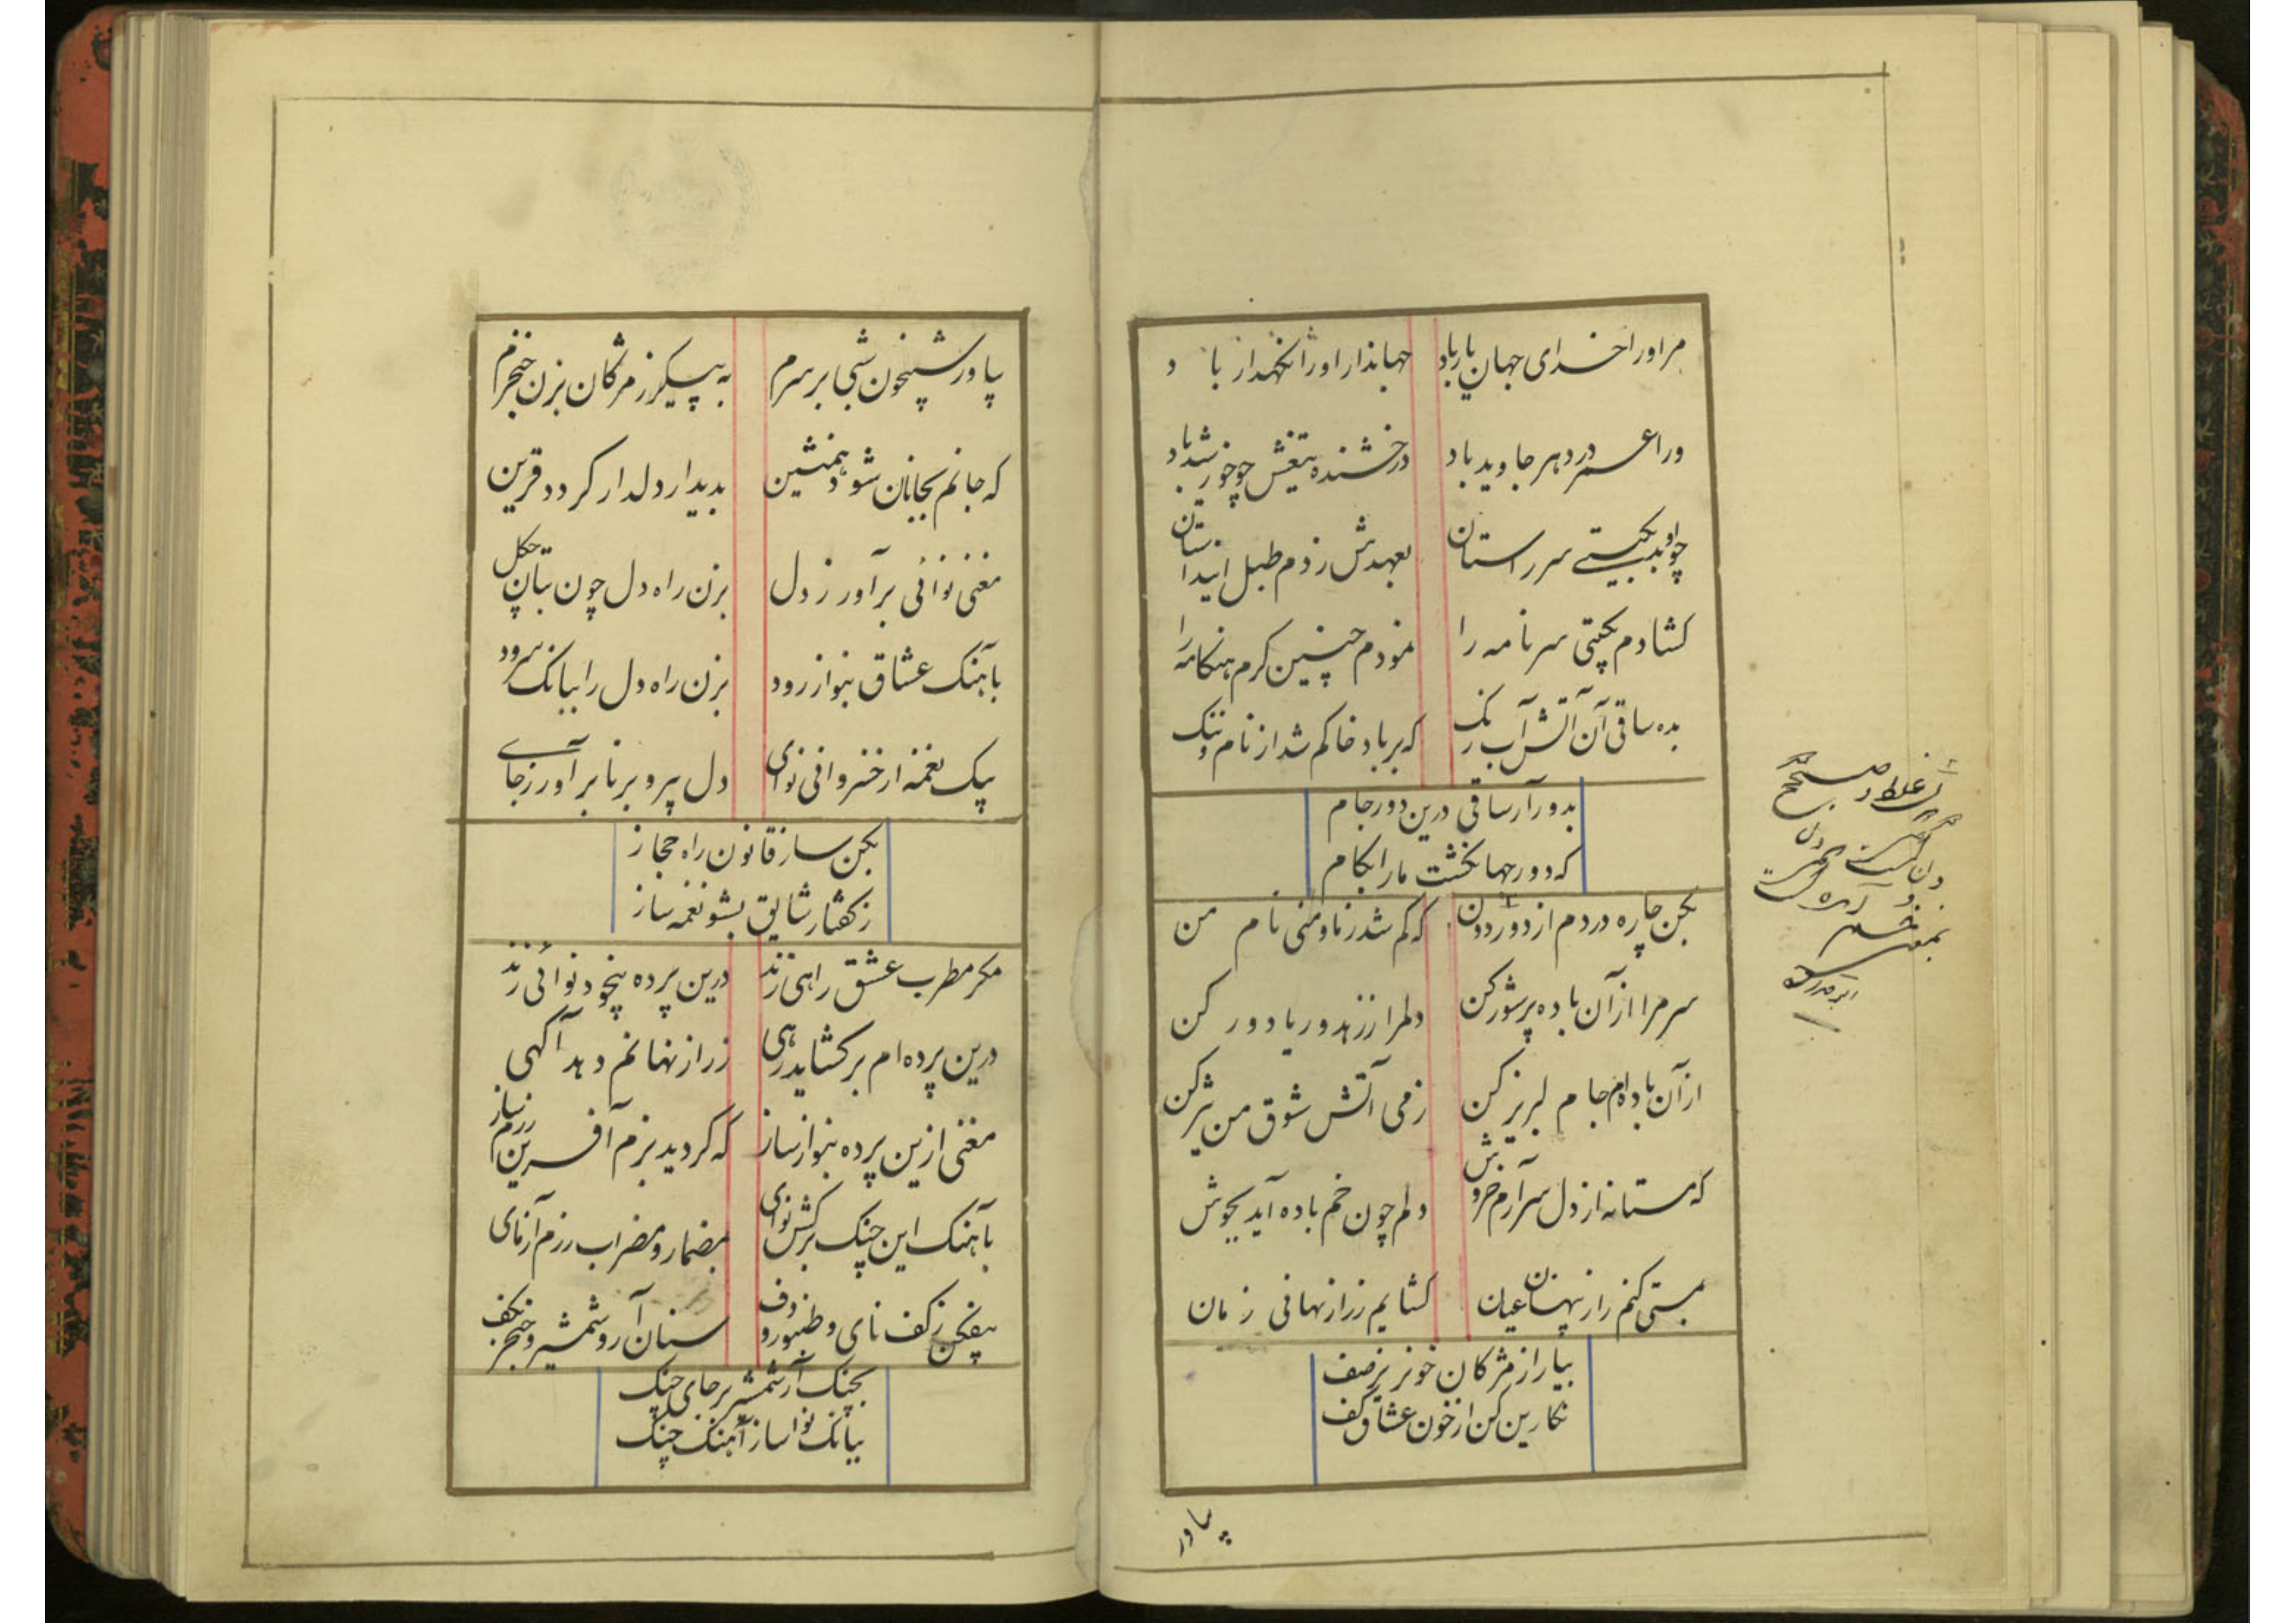 مر اورا خدای جهان یار باد جهاندار اورا نکهدار باد
ورا عمر در دهر جاوید باد درخشنده تیغش چو خورشید باد
چو او بد بکیتے سر راستان بعهدش زدم طبل این داستان
کشادم بکیتی سر نامه را نمودم چنین کرم هنکامه را
بده ساقی آن آتش آب رنک که بر باد خاکم شد از نام و ننک
بدور آر ساقی درین دور جام
که دور جهان کشت مارا بکام
بکن چاره دردم از دور دون که کم شد ز ما و منی نام من
سر مرا از آن باده پر شور کن دلمرا ز زهد و ریا دور کن
از آن باده ام جام لبریز کن ز می آتش شوق من تیز کن
که مستانه از دل سر آرم خروش دلم چون خم باده آید بجوش
بمستی کنم راز پنهان عیان کشایم ز راز نهانی زمان
بیار از مژکان خونریز صف
نکارین کن از خون عشاق کف
غلط صحیح
دن
بیاور
بیاور شبیخون شبی بر سرم به پیکر ز مژکان بزن خنجرم
که جانم بجانان شود همنشین بدیدار دلدار کردد قرین
مغنی نوائی برآور ز دل بزن راه دل چون بتان چکل
بآهنک عشاق بنواز رود بزن راه دل را ببانک سرود
بیک نغمه از خسروانی نوای دل پیر و برنا برآور ز جاے
بکن ساز قانون راه حجاز
ز کفتار شایق بشنو نغمه ساز
مکر مطرب عشق راهی زند درین پرده بیخود نوائی زند
درین پرده ام برکشاید رهی ز راز نهانم دهد آکهی
مغنی ازین پرده بنواز ساز که کردید بزم آفرین رزم ساز
بآهنک این چنک برکش نوای بمضمار و مضراب رزم آزمای
بیفکن ز کف نای و طنبور و دف سنان آر و شمشیر و خنجر بکف
بچنک آر شمشیر بر جای چنک
ببانک نوا ساز آهنک جنک